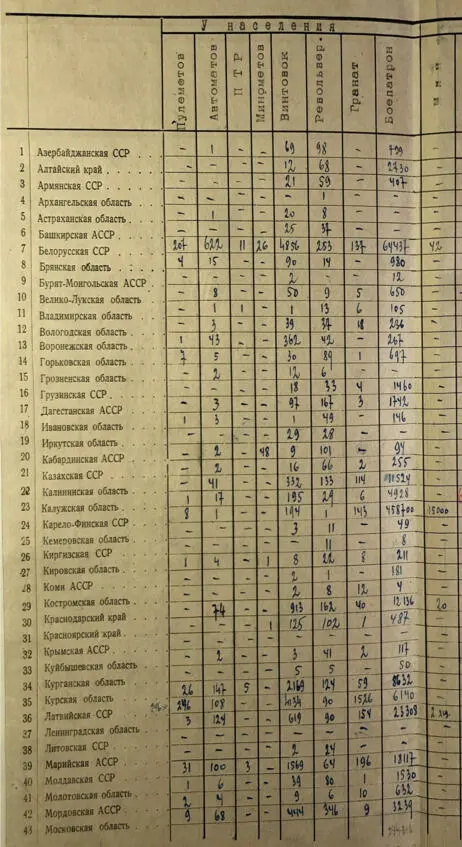 У населения
Пулеметов Автоматов ПТР Минометов Винтовок Револьвер. Гранат Боепатрон Мин
1 Азербайджанская ССР . . . – 1 – – 69 98 – 799
2 Алтайский край . . . . . – – – – 12 68 – 2730
3 Армянская ССР . . . . – – – – 21 59 – 407
4 Архангельская область . . – – – – – 1 – –
5 Астраханская область . . – 1 – – 20 8 – –
6 Башкирская АССР . . . – – – – 25 37 – –
7 Белорусская ССР . . . 207 622 11 26 4856 253 137 64437 42
8 Брянская область . . . 4 15 – – 90 14 – 980
9 Бурят-Монгольская АССР – – – – 2 – – 12
10 Велико-Лукская область – 8 – – 50 9 5 650
11 Владимирская область . – 1 1 – 1 13 6 105
12 Вологодская область . . – 3 – – 39 37 18 236
13 Воронежская область . . 1 43 – – 362 42 – 267
14 Горьковская область . . 7 5 – – 30 89 1 697
15 Грозненская область . . – 2 – – 12 6 –
16 Грузинская ССР . . . – – – – 18 33 4 1460
17 Дагестанская АССР . . – 3 – – 97 167 3 1742
18 Ивановская область . . 1 3 – – 1 49 – 146
19 Иркутская область . . . – – – – 29 28 – –
20 Кабардинская АССР . . – 2 – 48 9 101 – 94
21 Казахская ССР . . . – 2 – – 16 66 2 255
22 Калининская область . . – 41 – – 332 133 114 11524
23 Калужская область . . . 1 17 – – 195 29 6 4928
8 1 – – 194 1 143 458700 15000
24 Карело-Финская ССР . . – – – – 3 11 – 49
25 Кемеровская область . . – – – – – 11 – 8
26 Киргизская ССР . . . 1 4 – 1 8 22 8 211
27 Кировская область . . . – – – – 2 1 – 181
28 Коми АССР . . . . – – – – 2 8 12 4
29 Костромская область . . – 74 – – 913 162 40 12136 20
30 Краснодарский край . . – – – 1 125 102 1 487
31 Красноярский край . . .
32 Крымская АССР . . . – 2 – – 3 41 2 117
33 Куйбышевская область . – – – – 5 5 – 50
34 Курганская область . . 26 147 5 – 2169 124 59 8632
35 Курская область . . . 296 108 – – 4134 90 1526 6140
36 Латвийская ССР . . . 3 124 – – 619 90 154 23308
37 Ленинградская область .
38 Литовская ССР . . . – – – – 2 24 – –
39 Марийская АССР . . . 31 100 3 – 1569 64 196 18117
40 Молдавская ССР . . . 1 6 – – 39 80 1 1530
41 Молотовская область . . 2 4 – – 9 6 10 632
42 Мордовская АССР . . . 9 68 – – 444 346 9 3239
43 Московская область . . .